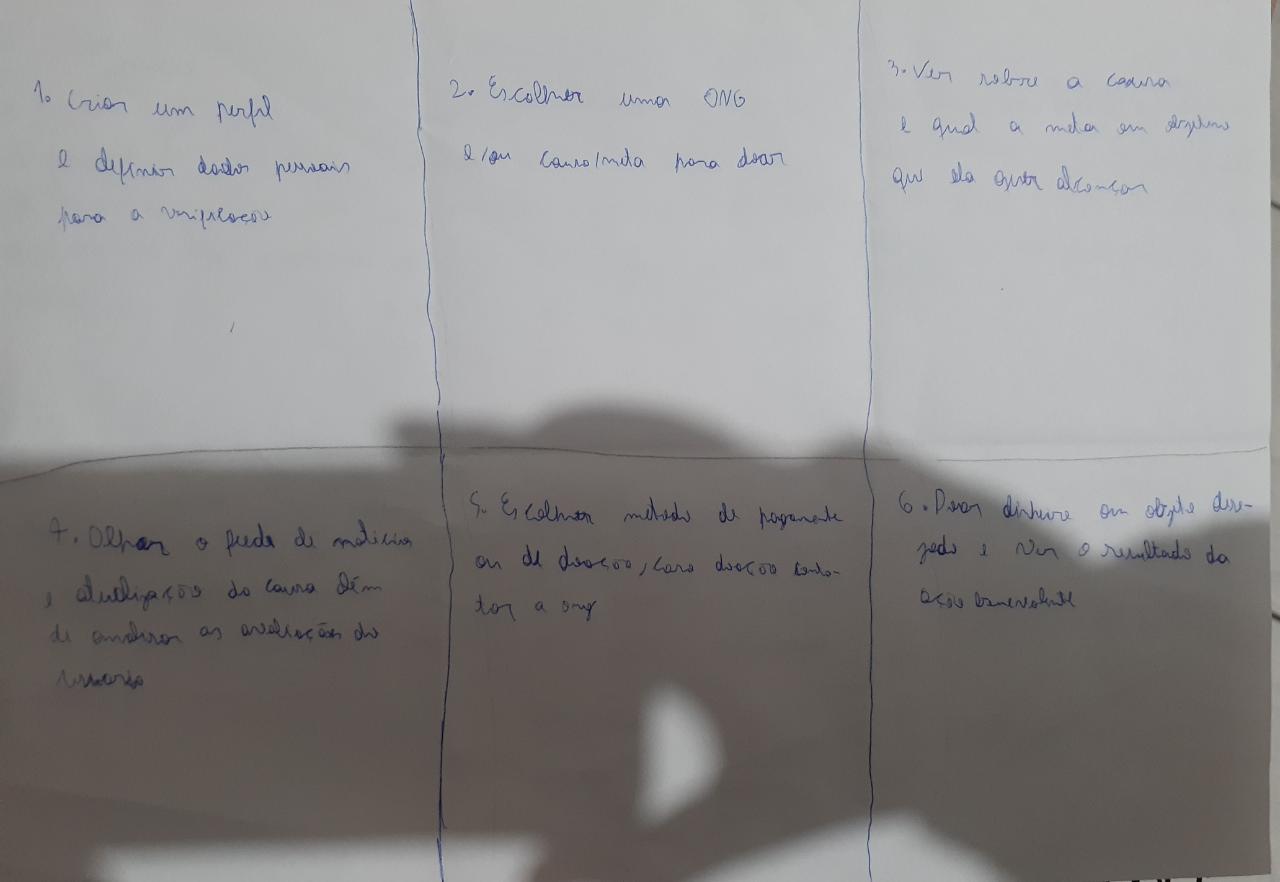 1. Criar um perfil
e definir dados pessoais
para a verificação
2. Escolher uma ONG
e/ou causa/meta para doar
3. Ver sobre a causa
e qual a meta em objetivo
que ela quer alcançar
4. Olhar o feed de noticias
e atualização da causa além
de analisar as avaliações do
usuario
5. Escolher metodo de pagamento
ou de doação, caso doação conta-
tar a ong
6. Doar dinheiro ou objeto dese-
jado e ver o resultado da
ação benevolente